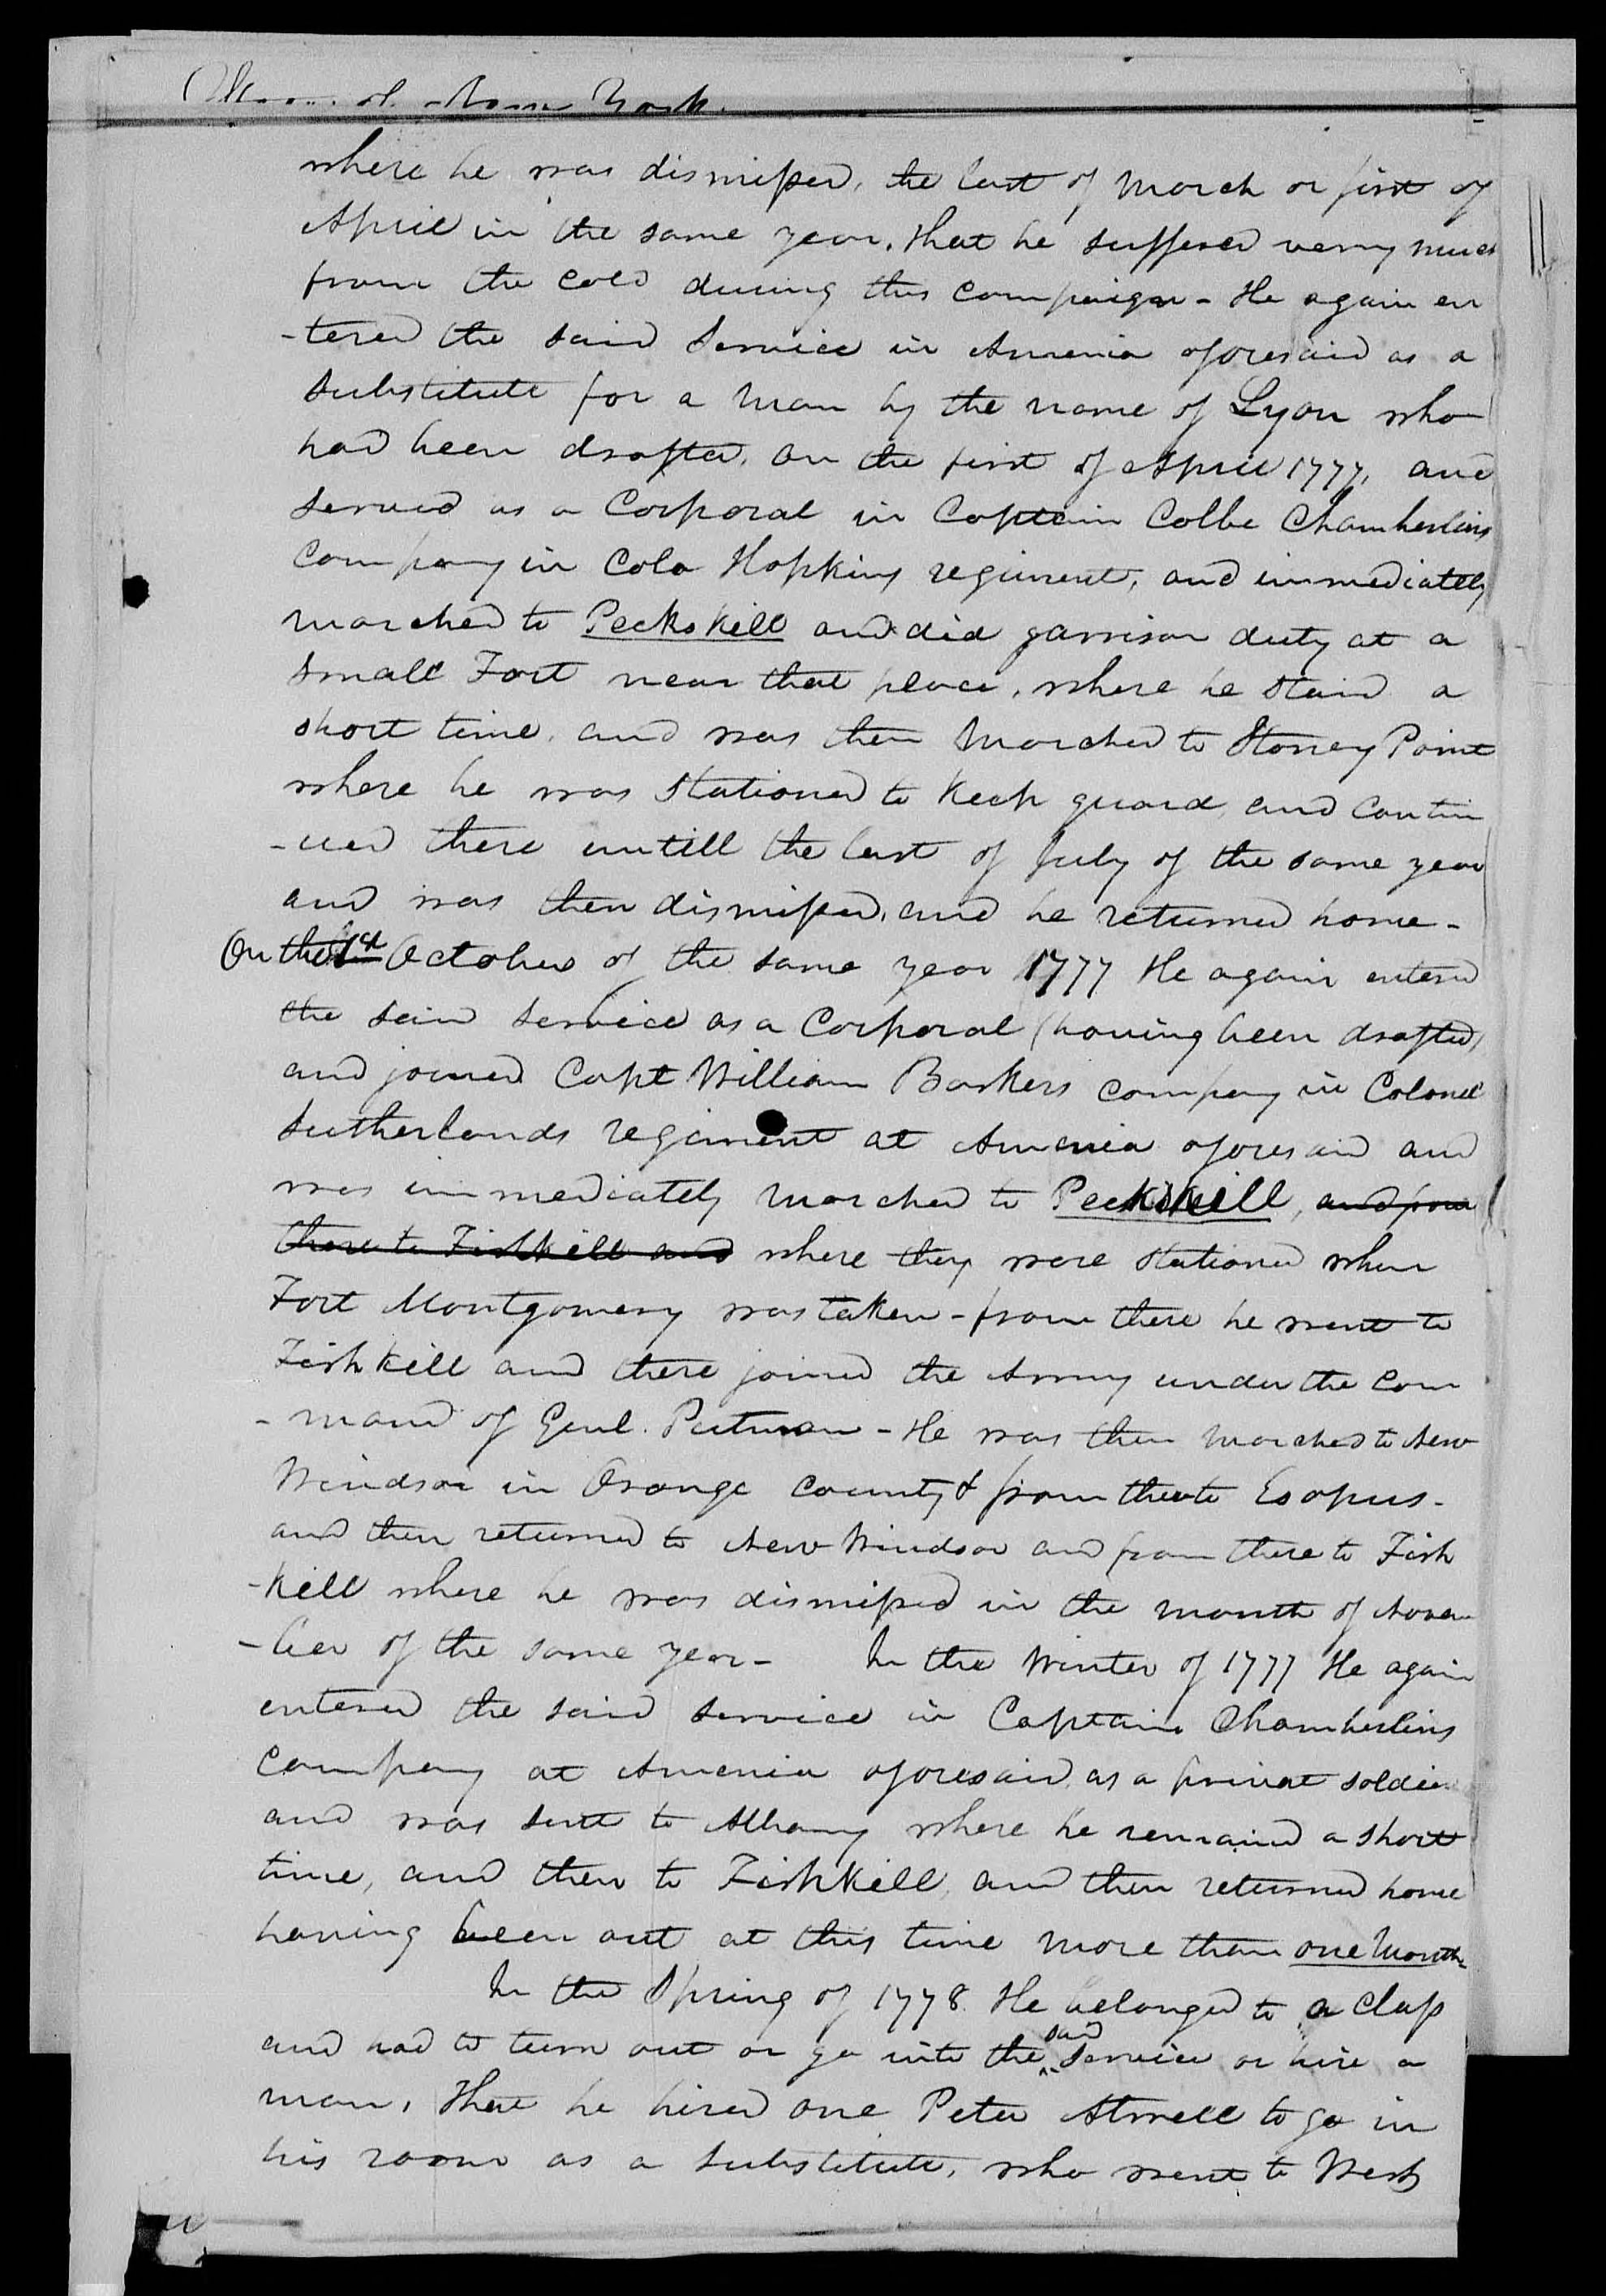 York.
where he was dismissed, the last of March or first of
April in the same year. that he suffered verry much
from the cold during this campaign - He again en
-tered the said Service in Amenia aforesaid as a
substitute for a man by the name of Lyon who
had been drafted, on the first of April 1777, and
served as a Corporal in Captain Colbe Chamberlins
company in Colo Hopkins regiment, and immediately
marched to Peekskill and did garrison duty at a
small Fort near that place, where he staid a
short time, and was then marched to Stoney Point
where he was stationed to keep guard, and contin
-ued there untill the last of July of the same year
and was then dismissed, and he returned home -
On the 1st October of the same year 1777 He again entered
the said service as a Corporal (having been drafted)
and joined Capt William Barkers company in Colonel
Sutherlands regiment at Amenia aforesaid and
was immediately marched to Peekskill, and from
there to Fishkill and where they were stationed when
Fort Montgomery was taken - from there he went to
Fishkill and there joined the Army under the com
-mand of Genl. Putman - He was then marched to New
Windsor in Orange county & from there to Esopus -
and then returned to New Windsor and from there to Fish
-kill where he was dismissed in the month of Novem
-ber of the same year - In the Winter of 1777 He again
entered the said service in Captain Chamberlins
company at Amenia aforesaid, as a privat soldier
and was sent to Albany where he remained a short
time, and then to Fishkill, and then returned home
having been out at this time more than one Month -
In the Spring of 1778. He belonged to a class
and had to turn out or go into the said service or hire a
man, That he hired one Peter Atwell to go in
his room as a substitute, who went to West